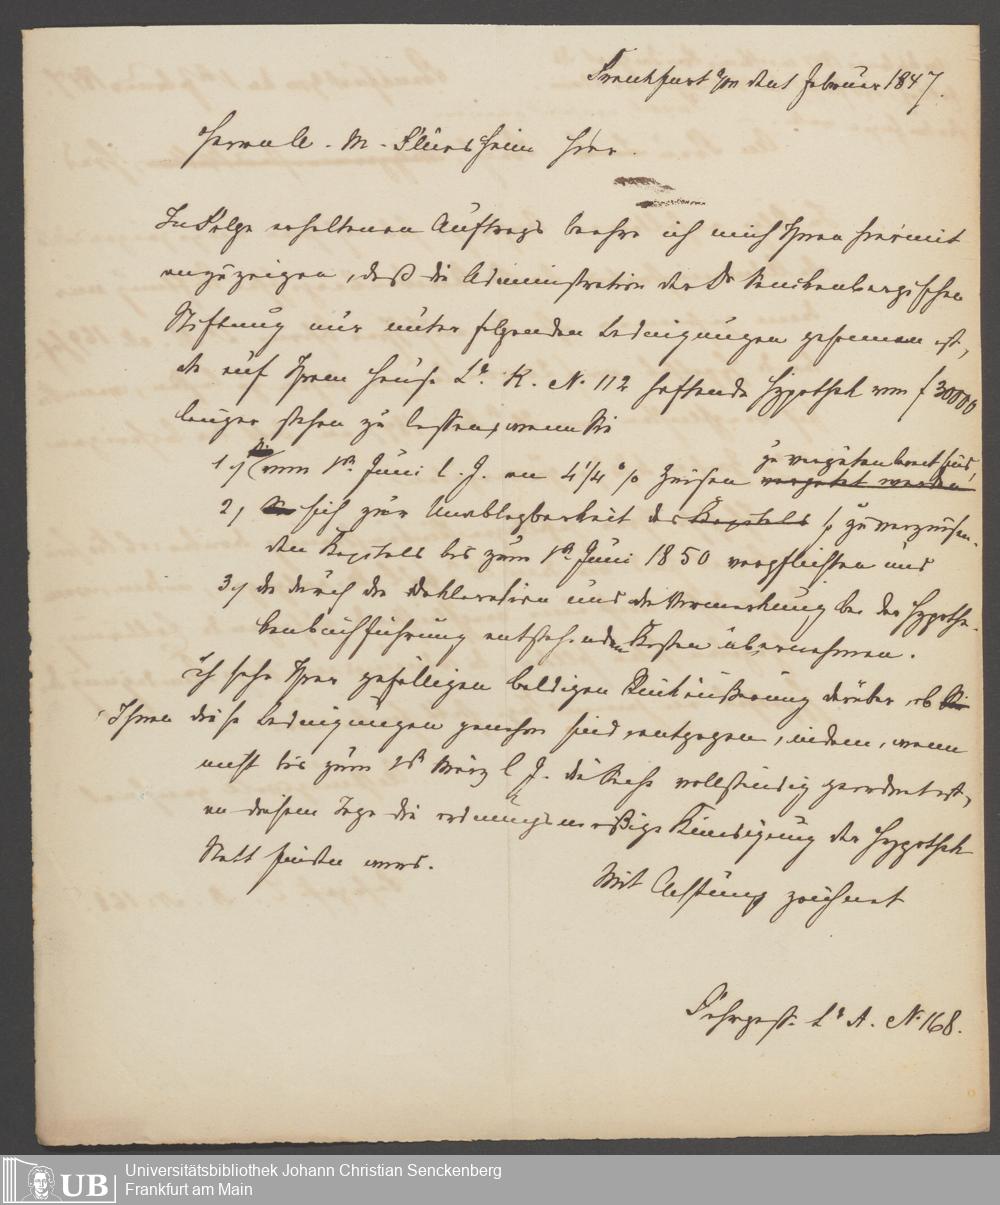 Frankfurt a/m den 1 Februar 1847.
Herrn U. M. Flürsheim Hier.
In Folge erhaltenen Auftrags beehre ich mich Ihnen hiermit
anzuzeigen, daß die Administration der Dr Senckenbergischen
Stiftung nur unter folgenden Bedingungen gesonnen ist,
die auf Ihrem Hause La. K. No. 112 haftende Hypothek von f 30000
länger stehen zu lassen, wenn Sie
1.) vom 1n Juni l. J. an 4 1/4 % Zinsen verzinst werden zu vergüten bereit sind,
2) Sie sich zur Unablegbarkeit des Kapitals so zu verzinsen-
den Kapitals bis zum 1n Juni 1850 verpflichten und
3.) die durch die Deklaration und die Vormerkung bei der Hypothe-
kenbuchführung entstehenden Kosten übernehmen.
Ich sehe Ihrer gefälligen baldigen Rückäußerung darüber, ob Sie
Ihnen diese Bedingungen genehm sind, entgegen, indem, wenn
nicht bis zum 1n März l. J. die Sache vollständig geordnet ist,
an diesem Tage die ordnungsmäßige Kündigung der Hypothek
Statt finden wird.
Mit Achtung zeichnet
Fahrgasse La A. No 168.
Universitätsbibliothek Johann Christian Senckenberg
Frankfurt am Main
UB